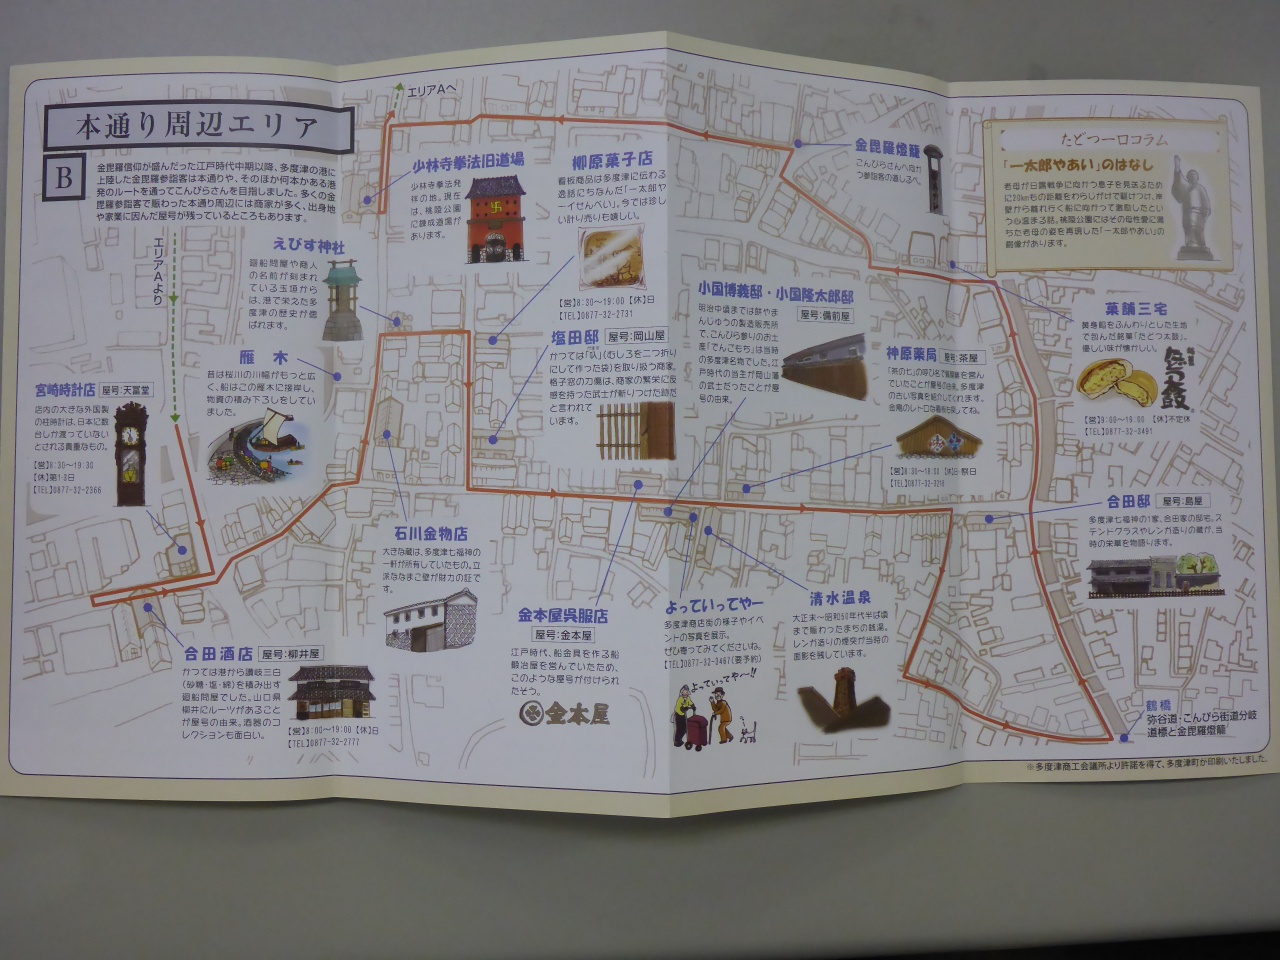 本通り周辺エリア
B
金毘羅信仰が盛んだった江戸時代中期以降、多度津の港に
上陸した金毘羅参詣客は本通りや、そのほか何本かある港
発のルートを通ってこんぴらさんを目指しました。多くの金
毘羅参詣客で賑わった本通り周辺には商家が多く、出身地
や家業に因んだ屋号が残っているところもあります。
エリアAより
エリアAへ
少林寺拳法旧道場
少林寺拳法発
祥の地。現在
は、桃陵公園
に錬成道場が
あります。
柳原菓子店
看板商品は多度津に伝わる
逸話にちなんだ「一太郎や
ーイせんべい」。今では珍し
い計り売りも嬉しい。
【営】8:30〜19:00 【休】日
【TEL】0877-32-2731
金毘羅燈籠
こんぴらさんへ向か
う参詣客の道しるべ。
たどつ一口コラム
「一太郎やあい」のはなし
老母が日露戦争に向かう息子を見送るため
に20kmもの距離をわらじがけで駆けつけ、岸
壁から離れ行く船に向かって激励したとい
う心温まる話。桃陵公園にはその母性愛に満
ちた老母の姿を再現した「一太郎やあい」の
銅像があります。
えびす神社
廻船問屋や商人
の名前が刻まれ
ている玉垣から
は、港で栄えた多
度津の歴史が偲
ばれます。
雁木
昔は桜川の川幅がもっと広
く、船はこの雁木に接岸し、
物資の積み下ろしをしてい
ました。
宮崎時計店 屋号:天冨堂
店内の大きな外国製
の柱時計は、日本に数
台しか渡っていない
とされる貴重なもの。
【営】8:30〜19:30
【休】第1・3日
【TEL】0877-32-2366
塩田邸 屋号:岡山屋
かつては「叺」(むしろを二つ折り
にして作った袋)を取り扱う商家。
格子窓の刀傷は、商家の繁栄に反
感を持った武士が斬りつけた跡だ
と言われて
います。
小国博義邸・小国隆太郎邸
屋号:備前屋
明治中頃までは餅やま
んじゅうの製造販売所
で、こんぴら参りのお土
産「でんごもち」は当時
の多度津名物でした。江
戸時代の当主が岡山藩
の武士だったことが屋
号の由来。
神原薬局 屋号:茶屋
【営】8:30〜18:00 【休】日・祭日
【TEL】0877-32-3216
菓舗三宅
黄身餡をふんわりとした生地
で包んだ銘菓「たどつ太鼓」。
優しい味が懐かしい。
【営】9:00〜19:00 【休】不定休
【TEL】0877-32-3491
合田邸 屋号:島屋
多度津七福神の1家、合田家の邸宅。ス
テンドグラスやレンガ造りの蔵が、当
時の栄華を物語ります。
石川金物店
大きな蔵は、多度津七福神の
一軒が所有していたもの。立
派ななまこ壁が財力の証で
す。
金本屋呉服店
屋号:金本屋
江戸時代、船金具を作る船
鍛冶屋を営んでいたため、
このような屋号が付けられ
たそう。
金本屋
よっていってやー
多度津商店街の様子やイベ
ントの写真を展示。
ぜひ寄ってみてくださいね。
【TEL】0877-32-3467(要予約)
よっていってや〜!!
清水温泉
大正末〜昭和50年代半ば頃
まで賑わったまちの銭湯。
レンガ造りの煙突が当時の
面影を残しています。
合田酒店 屋号:柳井屋
かつては港から讃岐三白
(砂糖・塩・綿)を積み出す
廻船問屋でした。山口県
柳井にルーツがあること
が屋号の由来。酒器のコ
レクションも面白い。
【営】8:00〜19:00 【休】日
【TEL】0877-32-2777
鶴橋
弥谷道・こんぴら街道分岐
道標と金毘羅燈籠
※多度津商工会議所より許諾を得て、多度津町が印刷いたしました。